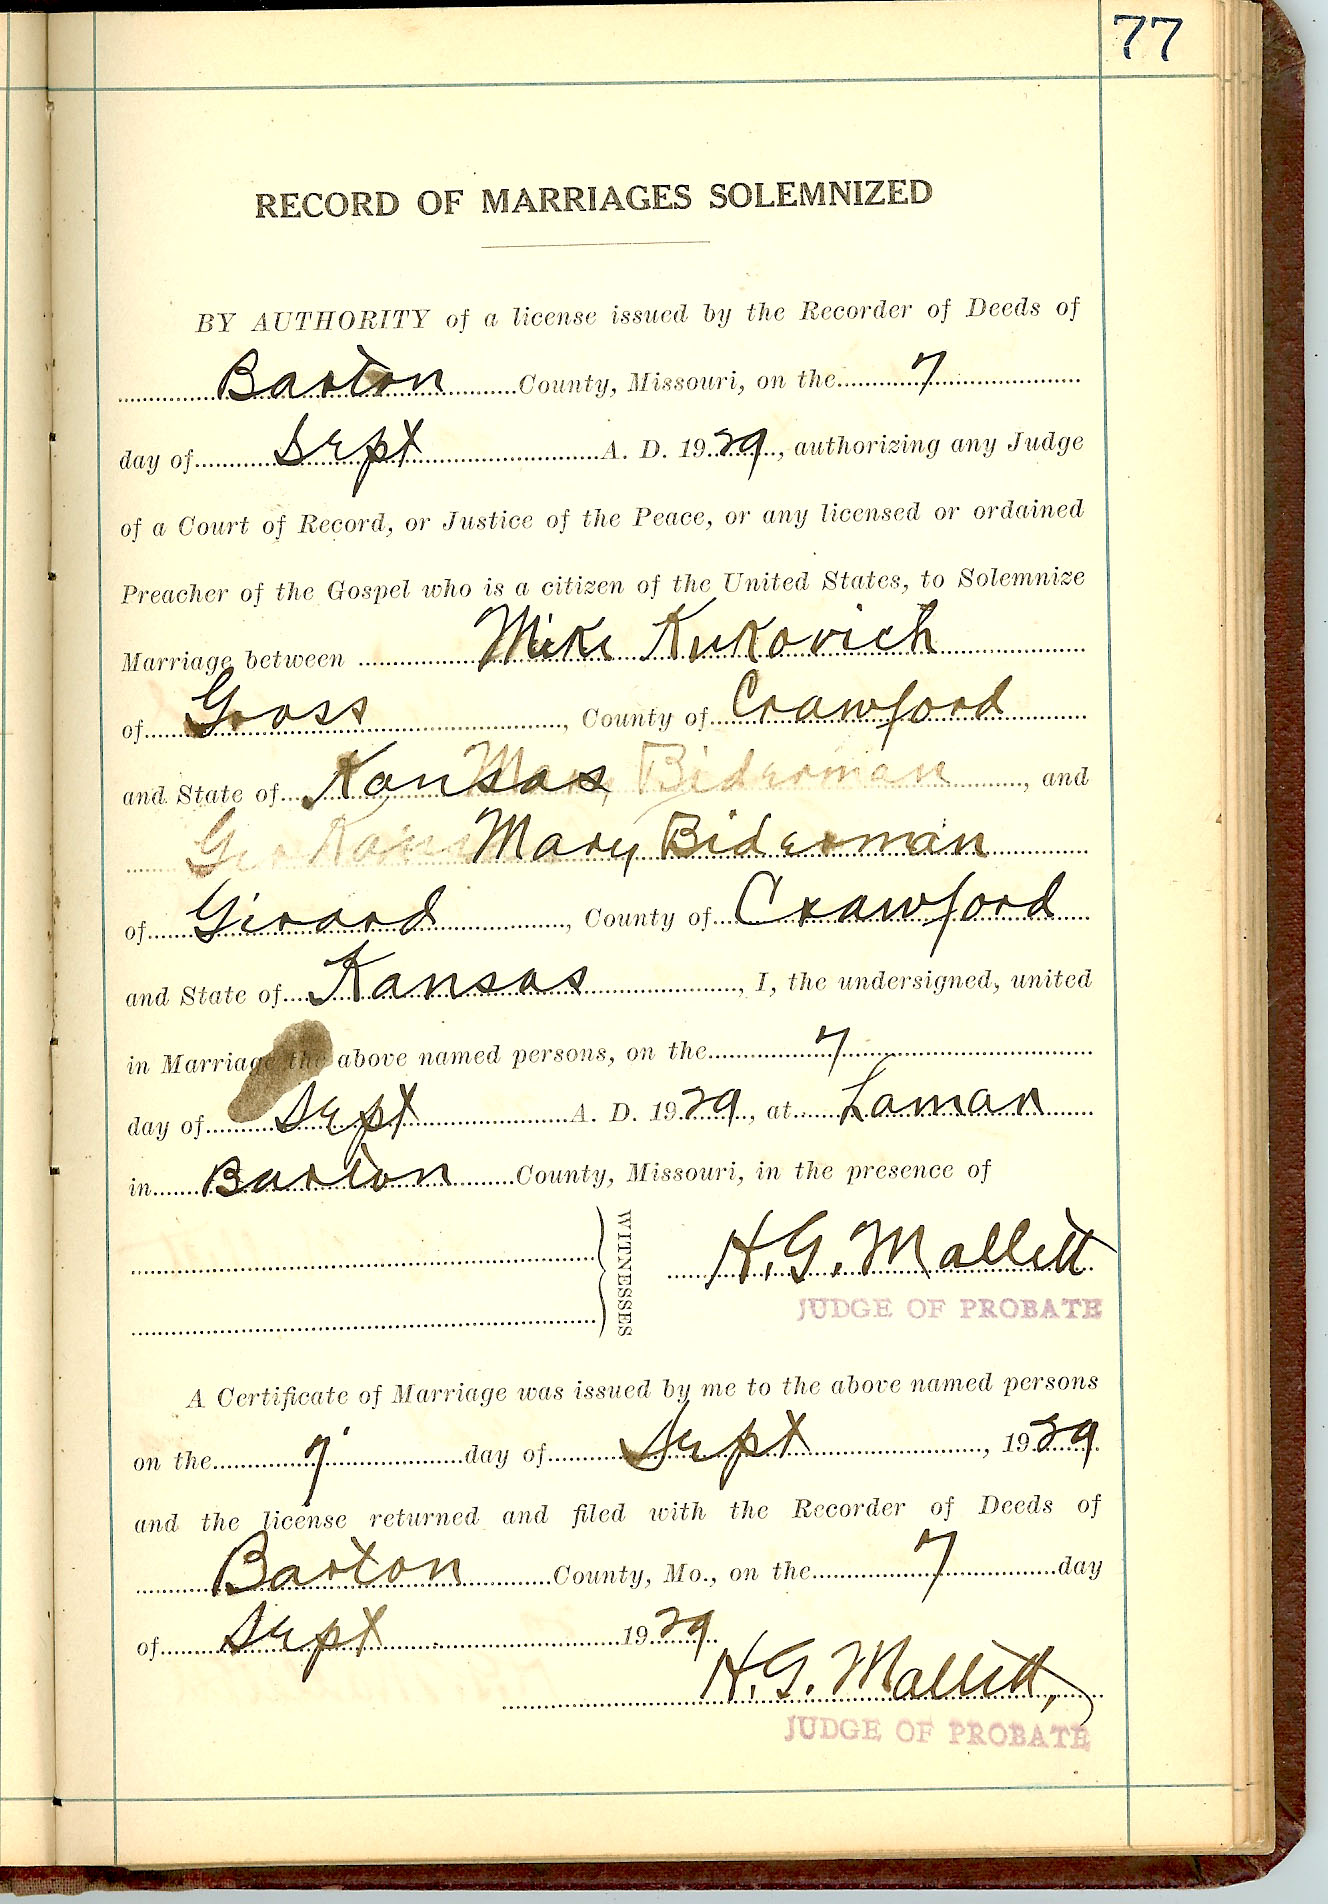 77
RECORD OF MARRIAGES SOLEMNIZED
BY AUTHORITY of a license issued by the Recorder of Deeds of
Barton County, Missouri, on the 7
day of Sept A. D. 1929, authorizing any Judge
of a Court of Record, or Justice of the Peace, or any licensed or ordained
Preacher of the Gospel who is a citizen of the United States, to Solemnize
Marriage between Mike Kukovich
of Gross, County of Crawford
and State of Kansas Mary Biderman, and
Mary Biderman
of Girard, County of Crawford
and State of Kansas, I, the undersigned, united
in Marriage the above named persons, on the 7
day of Sept A. D. 1929, at Lamar
in Barton County, Missouri, in the presence of
WITNESSES
H. G. Mallett
JUDGE OF PROBATE
A Certificate of Marriage was issued by me to the above named persons
on the 7 day of Sept, 1929
and the license returned and filed with the Recorder of Deeds of
Barton County, Mo., on the 7 day
of Sept 1929
H. G. Mallett,
JUDGE OF PROBATE